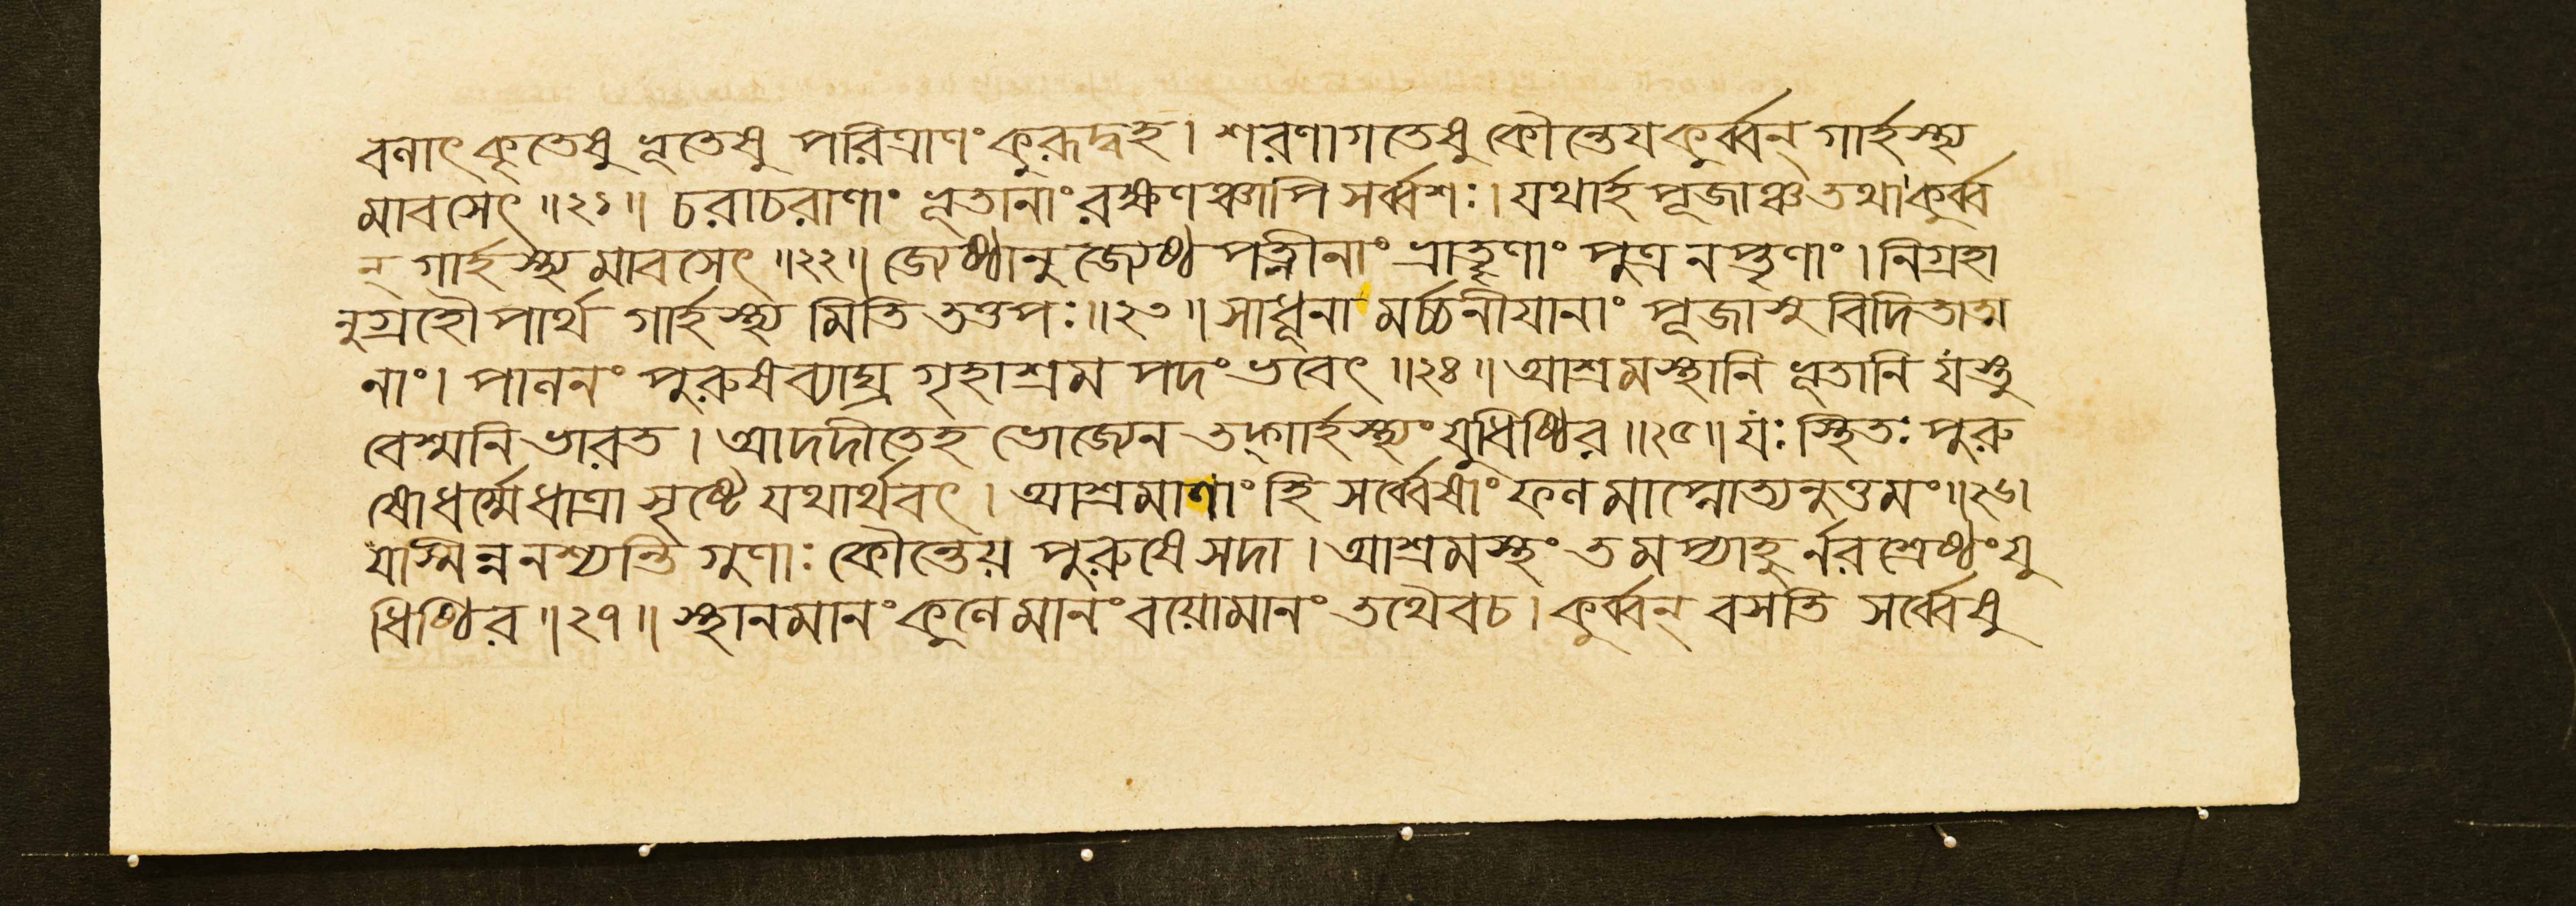 বলাৎ কৃতেষু ভূতেষু পরিত্রাণং কুরূদ্বহ। শরণাগতেষু কৌন্তেয কুর্ব্বন্ গার্হস্থ্য
মাবসেৎ ॥২১॥ চরাচরাণাং ভূতানাং রক্ষণঞ্চাপি সর্ব্বশঃ। যথার্হ পূজাঞ্চ তথা কুর্ব্ব
ন্ গার্হস্থ্য মাবসেৎ ॥২২॥ জ্যেষ্ঠানু জ্যেষ্ঠ পত্নীনাং ভ্রাতৄণাং পুত্র নপ্তৃণাং। নিগ্রহা
নুগ্রহৌ পার্থ গার্হস্থ্য মিতি তত্তপঃ॥২৩॥ সাধূনা মর্চ্চনীযানাং পূজাসু বিদিতাত্ম
নাং। পালনং পুরুষব্যাঘ্র গৃহাশ্রম পদং ভবেৎ ॥২৪॥ আশ্রমস্থানি ভূতানি যস্তু
বেশ্মনি ভারত। আদদীতেহ ভোজ্যেন তদ্গার্হস্থ্যং যুধিষ্ঠির ॥২৫॥ যঃ স্থিতঃ পুরু
ষোধর্ম্মে ধাত্রা সৃষ্টে যথার্থবৎ। আশ্রমাণাং হি সর্ব্বেষাং ফল মাপ্নোত্যনুত্তমং॥২৬।
যাস্মিন্ন নশ্যন্তি গুণাঃ কৌন্তেয় পুরুষে সদা। আশ্রমস্থং তমপ্যাহু র্নরশ্রেষ্ঠং যু
ধিষ্ঠির ॥২৭॥ স্থানমানং কুলে মানং বয়োমানং তথৈবচ। কুর্ব্বন্ বসতি সর্ব্বেষু